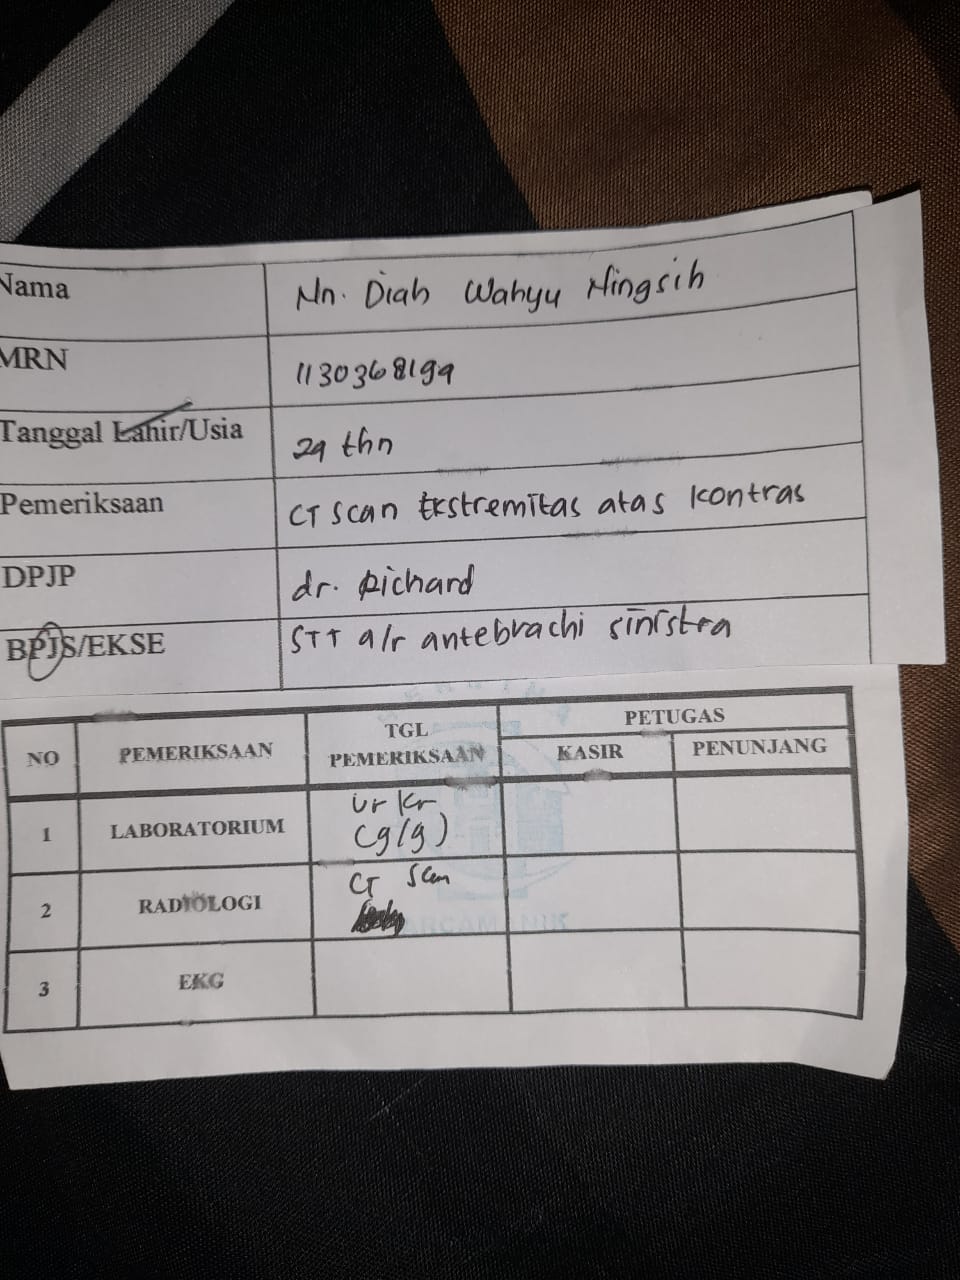 Nama Nn. Diah Wahyu Ningsih
MRN 1130368199
Tanggal Lahir/Usia 29 thn
Pemeriksaan CT Scan Ekstremitas atas kontras
DPJP dr. Richard
BPJS/EKSE STT a/r antebrachi sinistra
NO PEMERIKSAAN TGL PEMERIKSAAN PETUGAS
KASIR PENUNJANG
1 LABORATORIUM Ur Kr
(9/9)
2 RADIOLOGI CT Scan
ARCAMANIK
3 EKG